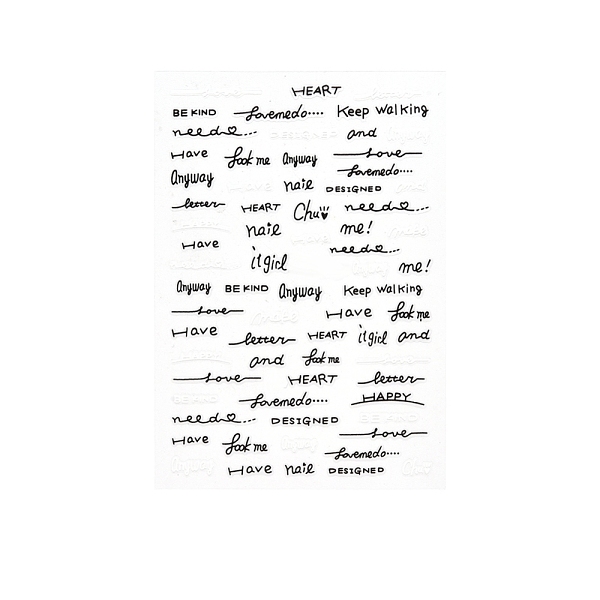 HEART
BE KIND lovemedo.... Keep Walking
need... DESIGNED and
Have look me Anyway Love
Anyway lovemedo....
nail DESIGNED
letter HEART Chu need...
nail me!
Have need...
itgirl me!
Anyway BE KIND Anyway Keep Walking
Love Have look me
Have letter HEART itgirl and
and look me
Love HEART letter
lovemedo.... HAPPY
need... DESIGNED
Have look me Love
lovemedo....
Have nail DESIGNED